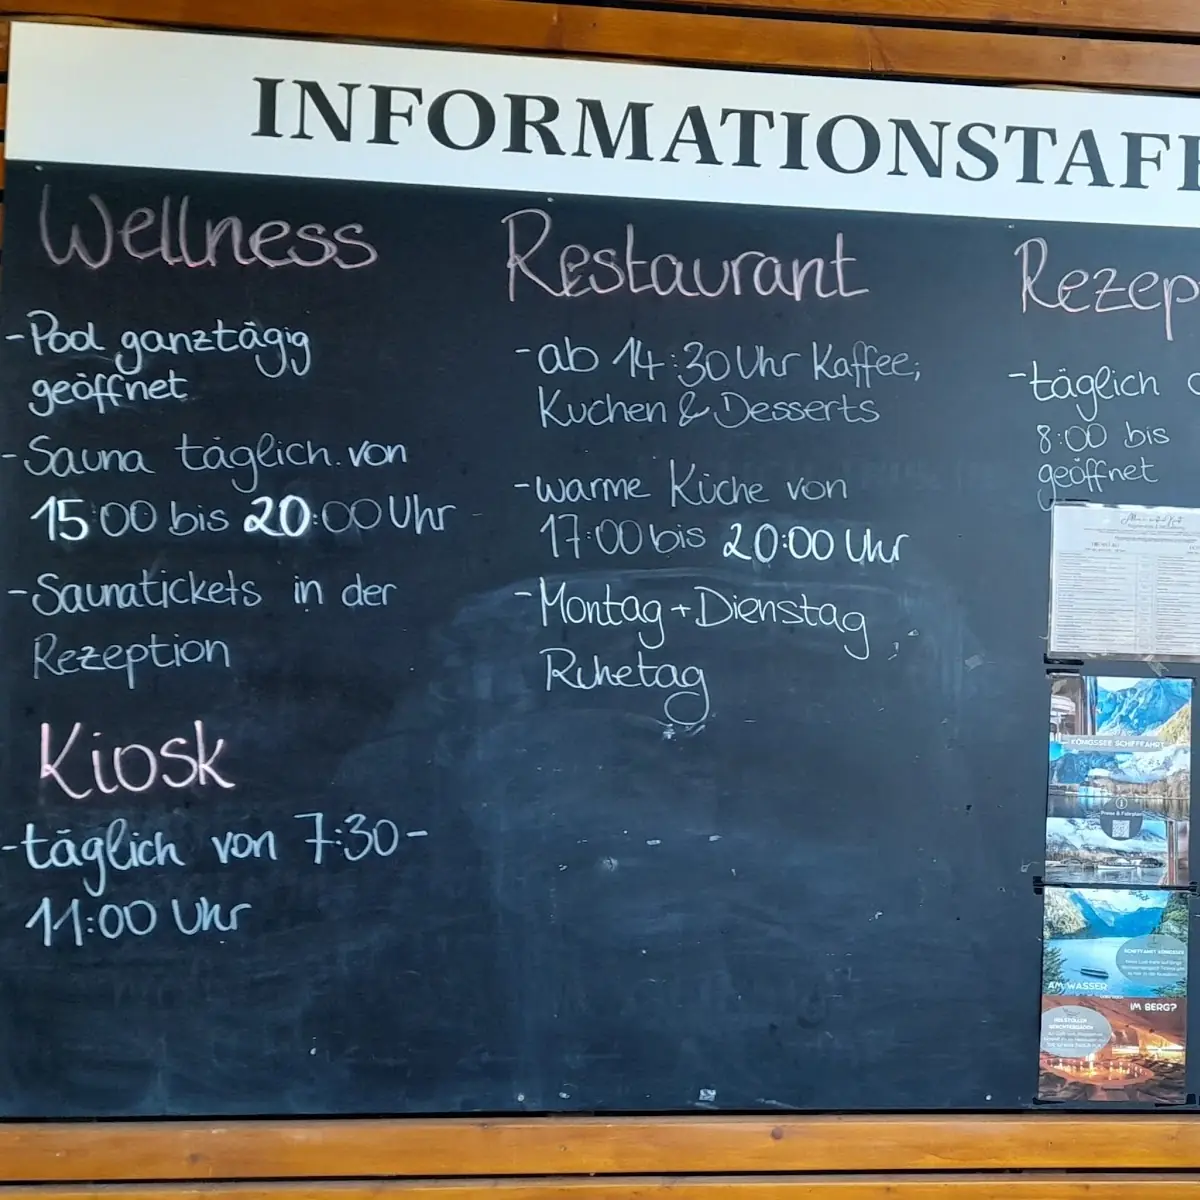 INFORMATIONSTAF
Wellness
-Pool ganztägig
geöffnet
-Sauna täglich von
15:00 bis 20:00 Uhr
-Saunatickets in der
Rezeption
Kiosk
-täglich von 7:30-
11:00 Uhr
Restaurant
-ab 14:30 Uhr Kaffee,
Kuchen & Desserts
-warme Küche von
17:00 bis 20:00 Uhr
-Montag + Dienstag
Ruhetag
Rezep
-täglich
8:00 bis
geöffnet
KÖNIGSSEE SCHIFFFAHRT
Preise & Fahrplan
AM WASSER
IM BERG?